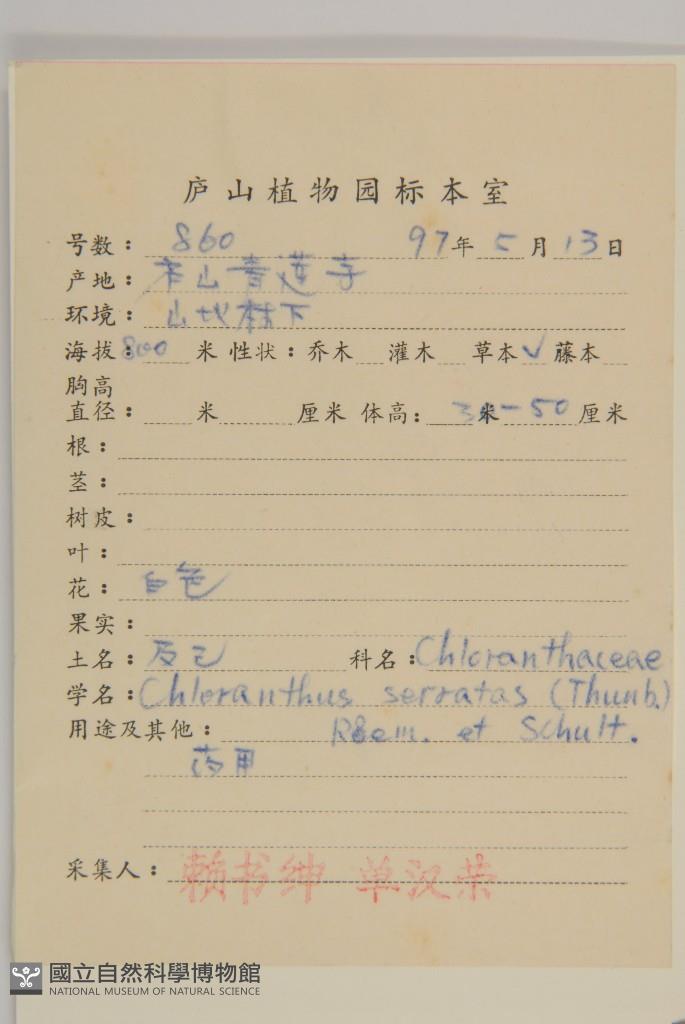 庐山植物园标本室
号数：860 97年5月13日
产地：本山青莲寺
环境：山地林下
海拔：800米 性状：乔木 灌木 草本√ 藤本
胸高
直径： 米 厘米 体高： 30米-50厘米
根：
茎：
树皮：
叶：
花：白色
果实：
土名：及己 科名：Chloranthaceae
学名：Chloranthus serratas (Thunb.)
用途及其他： Roem. et Schult.
药用
采集人：赖书绅 单汉荣
國立自然科學博物館
NATIONAL MUSEUM OF NATURAL SCIENCE